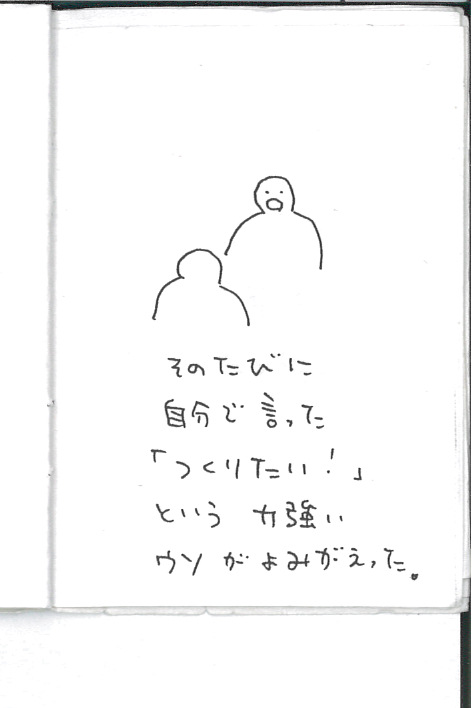 そのたびに
自分で言った
「つくりたい！」
という 力強い
ウソがよみがえった。